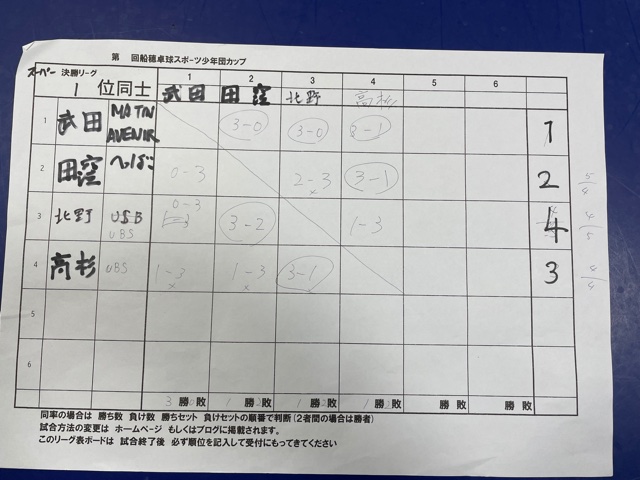 第 回船穂卓球スポーツ少年団カップ
スーパー 決勝リーグ
1 位同士
1 2 3 4 5 6
武田 田窪 北野 高杉
1 武田 AVENIR 3-0 3-0 3-1 1
2 田窪 へばこ 0-3 2-3 3-1 2 5/4
0-3
3 北野 USB 3-2 1-3 4 4/5
UBS
4 高杉 UBS 1-3 1-3 3-1 3 4/4
5
6
3勝0敗 1勝2敗 1勝2敗 1勝2敗 勝 敗 勝 敗
同率の場合は 勝ち数 負け数 勝ちセット 負けセットの順番で判断(2者間の場合は勝者)
試合方法の変更は ホームページ もしくはブログに掲載されます。
このリーグ表ボードは 試合終了後 必ず順位を記入して受付にもってきてください